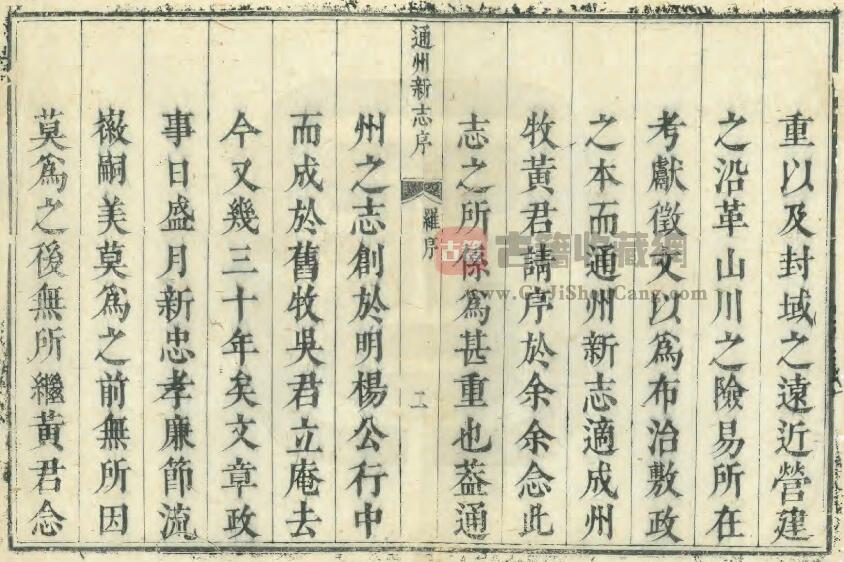 重以及封域之遠近營建
之沿革山川之險易所在
考獻徵文以為布治敷政
之本而通州新志適成州
牧黃君請序於余余念此
志之所係為甚重也葢通
通州新志序
羅序
二
州之志創於明楊公行中
而成於舊牧吳君立庵去
今又幾三十年矣文章政
事日盛月新忠孝廉節流
徽嗣美莫為之前無所因
莫為之後無所繼黃君念
古籍
古籍收藏網
www.GuJiShouCang.com